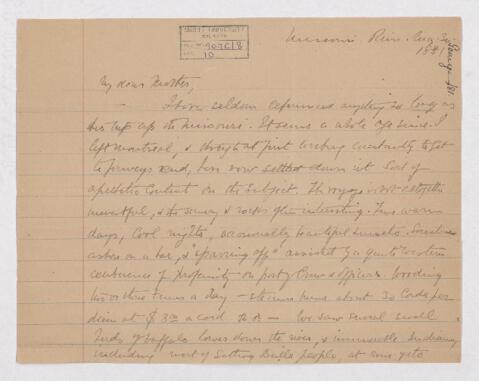 McGILL UNIVERSITY
ARCHIVES
ACC. NO. 909C/8
REF. 10
Missouri River. Aug. 20.
1881
George
My dear Mother,
I have seldom experienced anything so long as
this trip up the Missouri. It seems a whole age since I
left Montreal, & though at first looking constantly to get
to journeys end, have now settled down into a sort of
apathetic content on the subject. The voyage is not altogether
uneventful, & the scenery & rocks often interesting. Fine warm
days, cool nights, occasionally beautiful sunsets. Sometimes
ashore on a bar, & "sparring off" assisted by a quite western
of profanity on part of Crew & officers. Wooding
two or three times a day — steamer burns about 30 Cords per
diem at $3.00 a cord. We saw several small
herds of buffalo lower down the river, & innumerable Indians,
including most of Sitting Bulls people, at